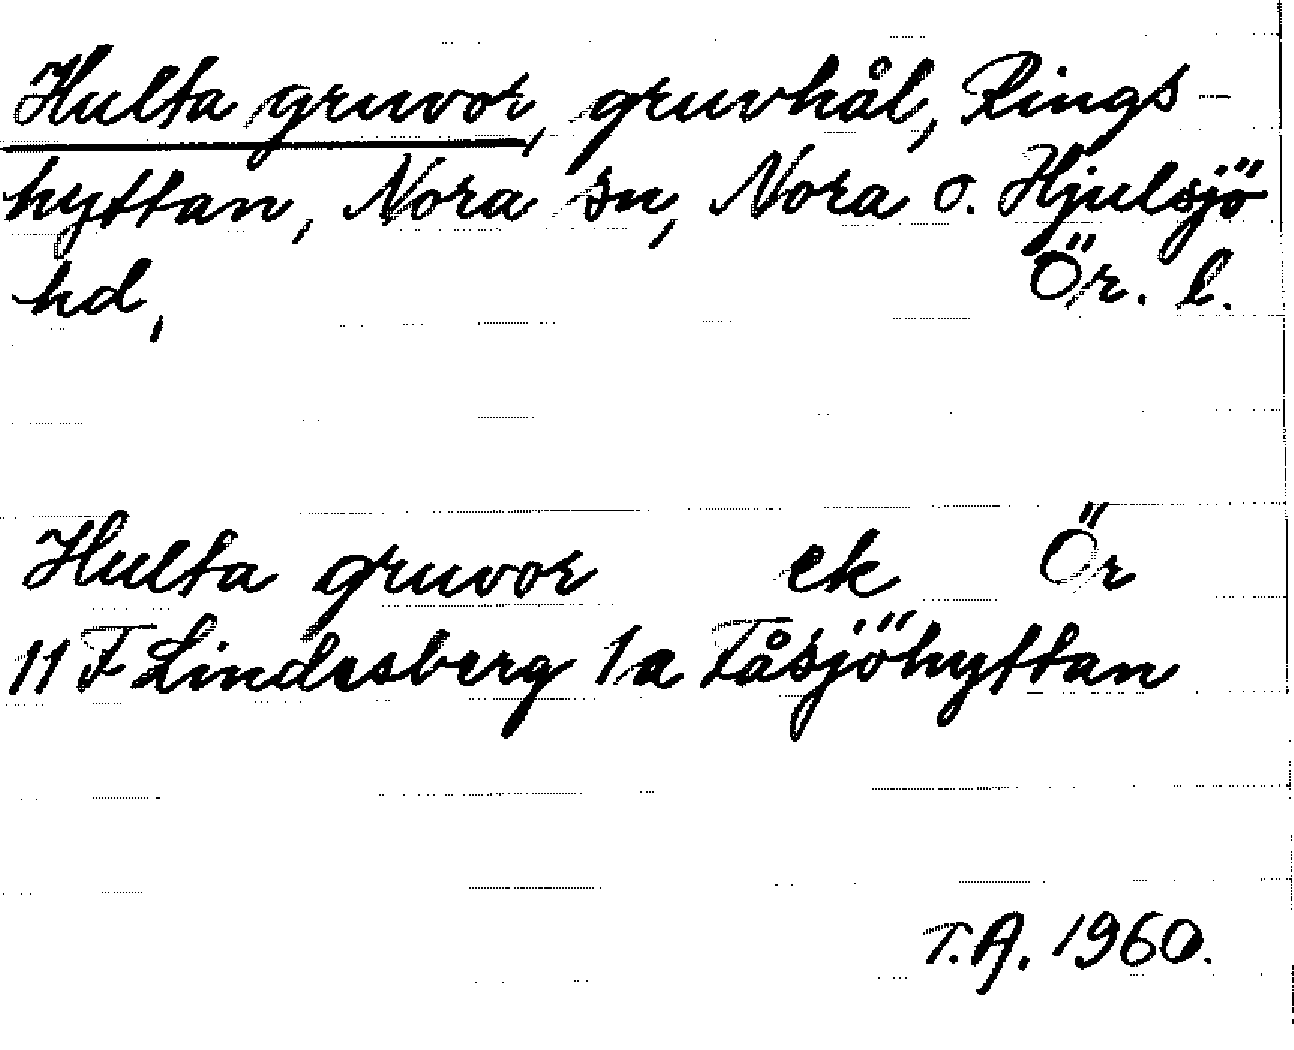 Hulta gruvor, gruvhål, Rings-
hyttan, Nora sn, Nora o. Hjulsjö
hd, Ör. l.
Hulta gruvor ek Ör
11 F Lindesberg 1a Tåsjöhyttan
T.A. 1960.